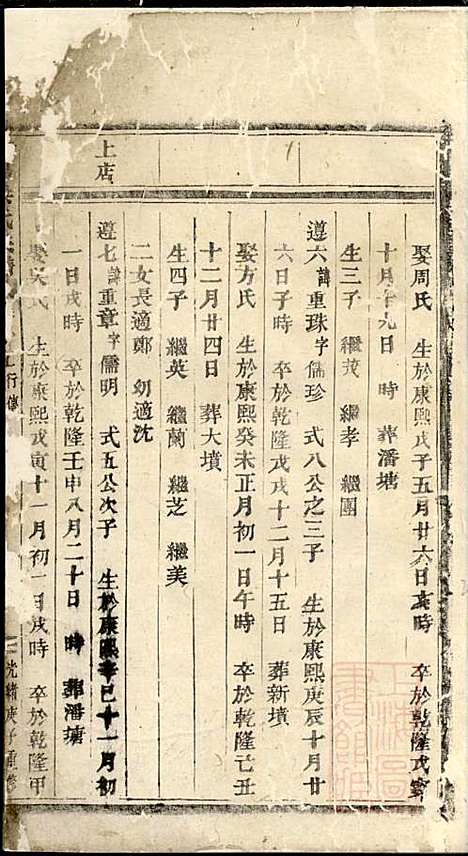 娶周氏 生於康熙戊子五月廿六日亥時 卒於乾隆戊寅
十月廿九日 時 葬潘塘
生三子 繼茂 繼孝 繼團
遵六諱重珠字儒珍 式八公之三子 生於康熙庚辰十月廿
六日子時 卒於乾隆戊戌十二月十五日 葬新墳
娶方氏 生於康熙癸未正月初一日午時 卒於乾隆己丑
十二月廿四日 葬大墳
生四子 繼英 繼蘭 繼芝 繼美
二女長適鄭 幼適沈
上店
遵七諱重章字儒明 式五公次子 生於康熙辛巳十一月初
一日戌時 卒於乾隆壬申八月二十日 時 葬潘塘
娶吳氏 生於康熙戊寅十一月初一日戌時 卒於乾隆甲
行傳
光緒庚子重修
上海圖書館藏